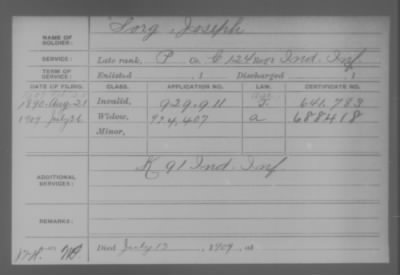 NAME OF SOLDIER: Sorg, Joseph
SERVICE: Late rank, P Co. G 124 Reg't Ind. Inf.
TERM OF SERVICE: Enlisted , 1 Discharged , 1
DATE OF FILING. CLASS. APPLICATION NO. LAW. CERTIFICATE NO.
1890. Aug. 21 Invalid, 929.911 641.783
1909. July 26 Widow, 924.407 a 688418
Minor,
ADDITIONAL SERVICES: K 91 Ind. Inf
REMARKS:
Died July 13, 1909, at